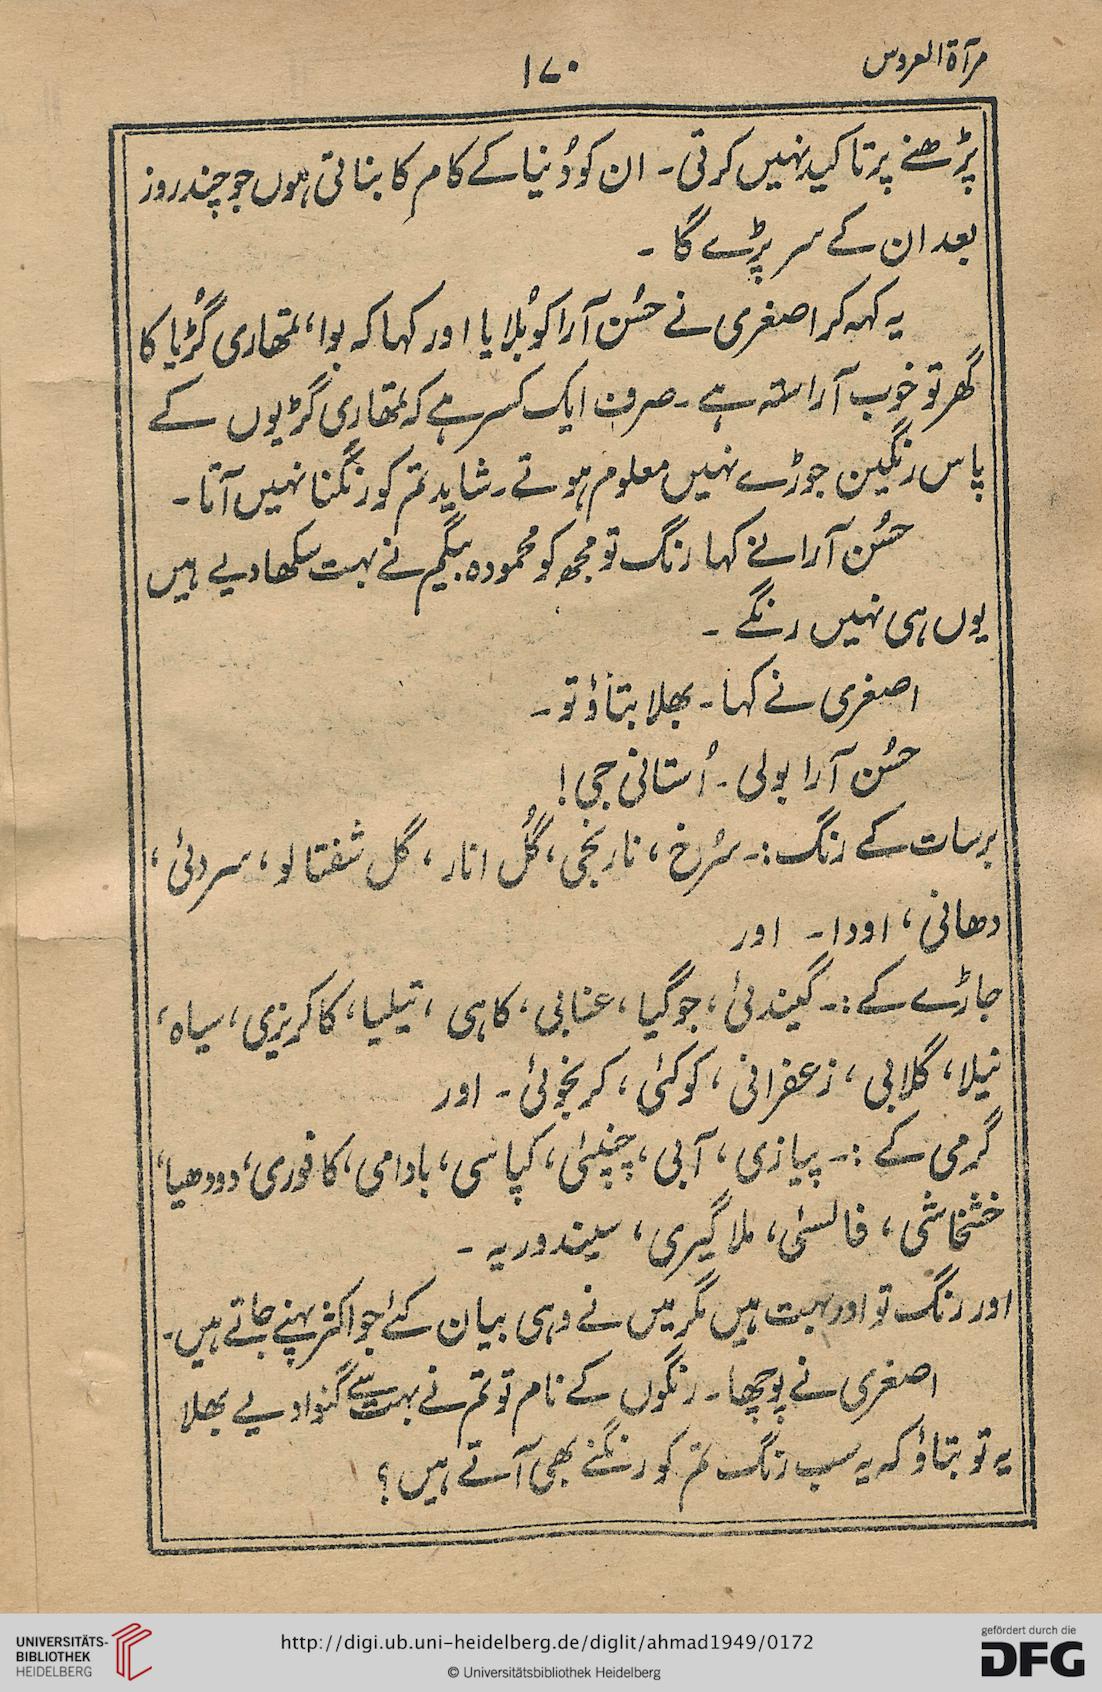 مرآۃ العروس
۱۷۰
پڑھنے پر تاکید نہیں کرتی۔ ان کو دُنیا کے کام کا بناتی ہوں جو چند روز
بعد ان کے سر پڑے گا ۔
یہ کہہ کر اصغری نے حسُن آرا کو بُلایا اور کہا کہ بوا، تمھاری گُڑیا کا
گھر تو خوب آراستہ ہے ۔ صرف ایک کسر ہے کہ تمھاری گڑیوں کے
پاس رنگین جوڑے نہیں معلوم ہوتے۔ شاید تم کو رنگنا نہیں آتا ۔
حسُن آرا نے کہا رنگ تو مجھ کو محمودہ بیگم نے بہت سکھا دیے ہیں
یوں ہی نہیں رنگے ۔
اصغری نے کہا ۔ بھلا بتاؤ تو ۔
حسُن آرا بولی ۔ اُستانی جی !
برسات کے رنگ :۔ سُرخ ، نارنجی، گُل انار ، گل شفتالو ، سردئی ،
دھانی ، اودا ۔ اور
جاڑے کے :۔ گیندئی ، جوگیا ، عنابی ، کاہی ، تیلیا ، کاکریزی ، سیاہ ،
نیلا ، گلابی ، زعفرانی ، کوکئی ، کرنجوئی ۔ اور
گرمی کے :۔ پیازی ، آبی ، چنپئی ، کپاسی ، بادامی ، کافوری ، دودھیا ،
خشخاشی ، فالسئی ، ملاگیری ، سیندوریہ ۔
اور رنگ تو اور بہت ہیں مگر میں نے وہی بیان کئے جو اکثر پہنے جاتے ہیں۔
اصغری نے پوچھا ۔ رنگوں کے نام تو تم نے بہت سے گنوا دیے بھلا
یہ تو بتاؤ کہ یہ سب رنگ تم کو رنگنے بھی آتے ہیں ؟
UNIVERSITÄTS-
BIBLIOTHEK
HEIDELBERG
http://digi.ub.uni-heidelberg.de/diglit/ahmad1949/0172
© Universitätsbibliothek Heidelberg
gefördert durch die
DFG